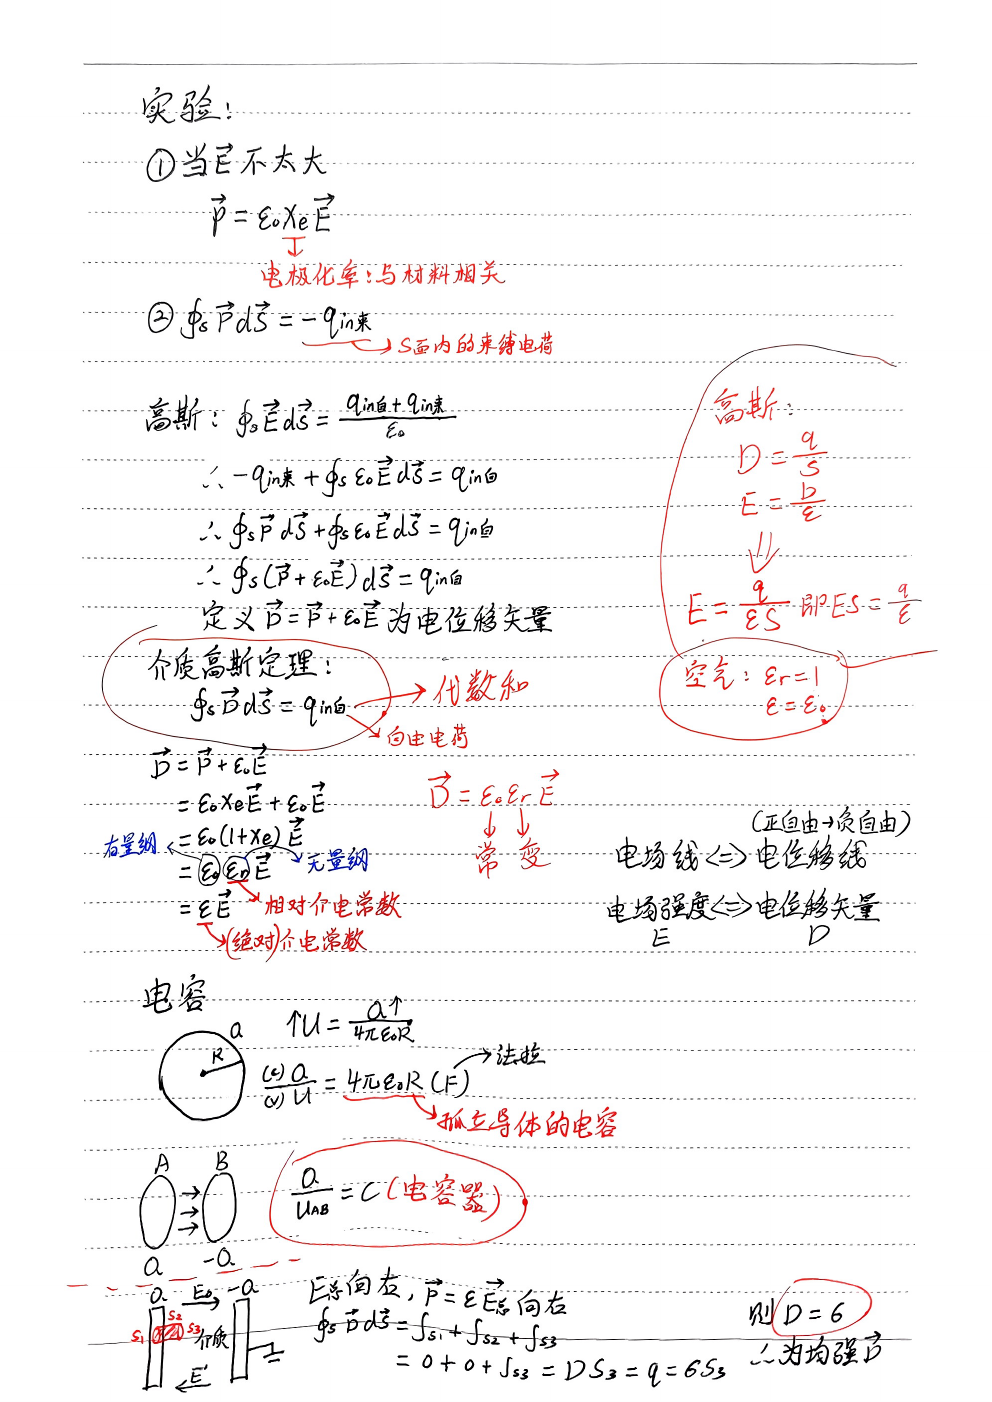 实验：
①当E→不太大
P→ = ε₀χeE→
电极化率：与材料相关
②∮s P→dS→ = -qin束
S面内的束缚电荷
高斯：∮s E→dS→ = (qin自+qin束)/ε₀
∴ -qin束 + ∮s ε₀E→dS→ = qin自
∴ ∮s P→dS→ + ∮s ε₀E→dS→ = qin自
∴ ∮s (P→ + ε₀E→)dS→ = qin自
定义 D→ = P→ + ε₀E→ 为电位移矢量
高斯：
D = q/S
E = D/ε
⇓
E = q/εS 即ES = q/ε
空气：εr = 1
ε = ε₀
介质高斯定理：
∮s D→dS→ = qin自
代数和
自由电荷
D→ = P→ + ε₀E→
= ε₀χeE→ + ε₀E→
= ε₀(1+χe)E→
= ε₀εrE→
有量纲
无量纲
相对介电常数
= εE→
(绝对)介电常数
D→ = ε₀εrE→
常 变
(正自由→负自由)
电场线<=>电位移线
电场强度<=>电位移矢量
E D
电容
Q
R
↑U = Q↑/4πε₀R
(C)Q/(V)U = 4πε₀R (F)
法拉
孤立导体的电容
A B
Q -Q
Q/UAB = C (电容器)
Q E₀ -Q
S1 S2 S3 介质
E'
E总向右，P→ = εE→总向右
∮s D→dS→ = ∫s1 + ∫s2 + ∫s3
= 0 + 0 + ∫s3 = DS3 = q = 6S3
则 D = 6
∴为均强D→